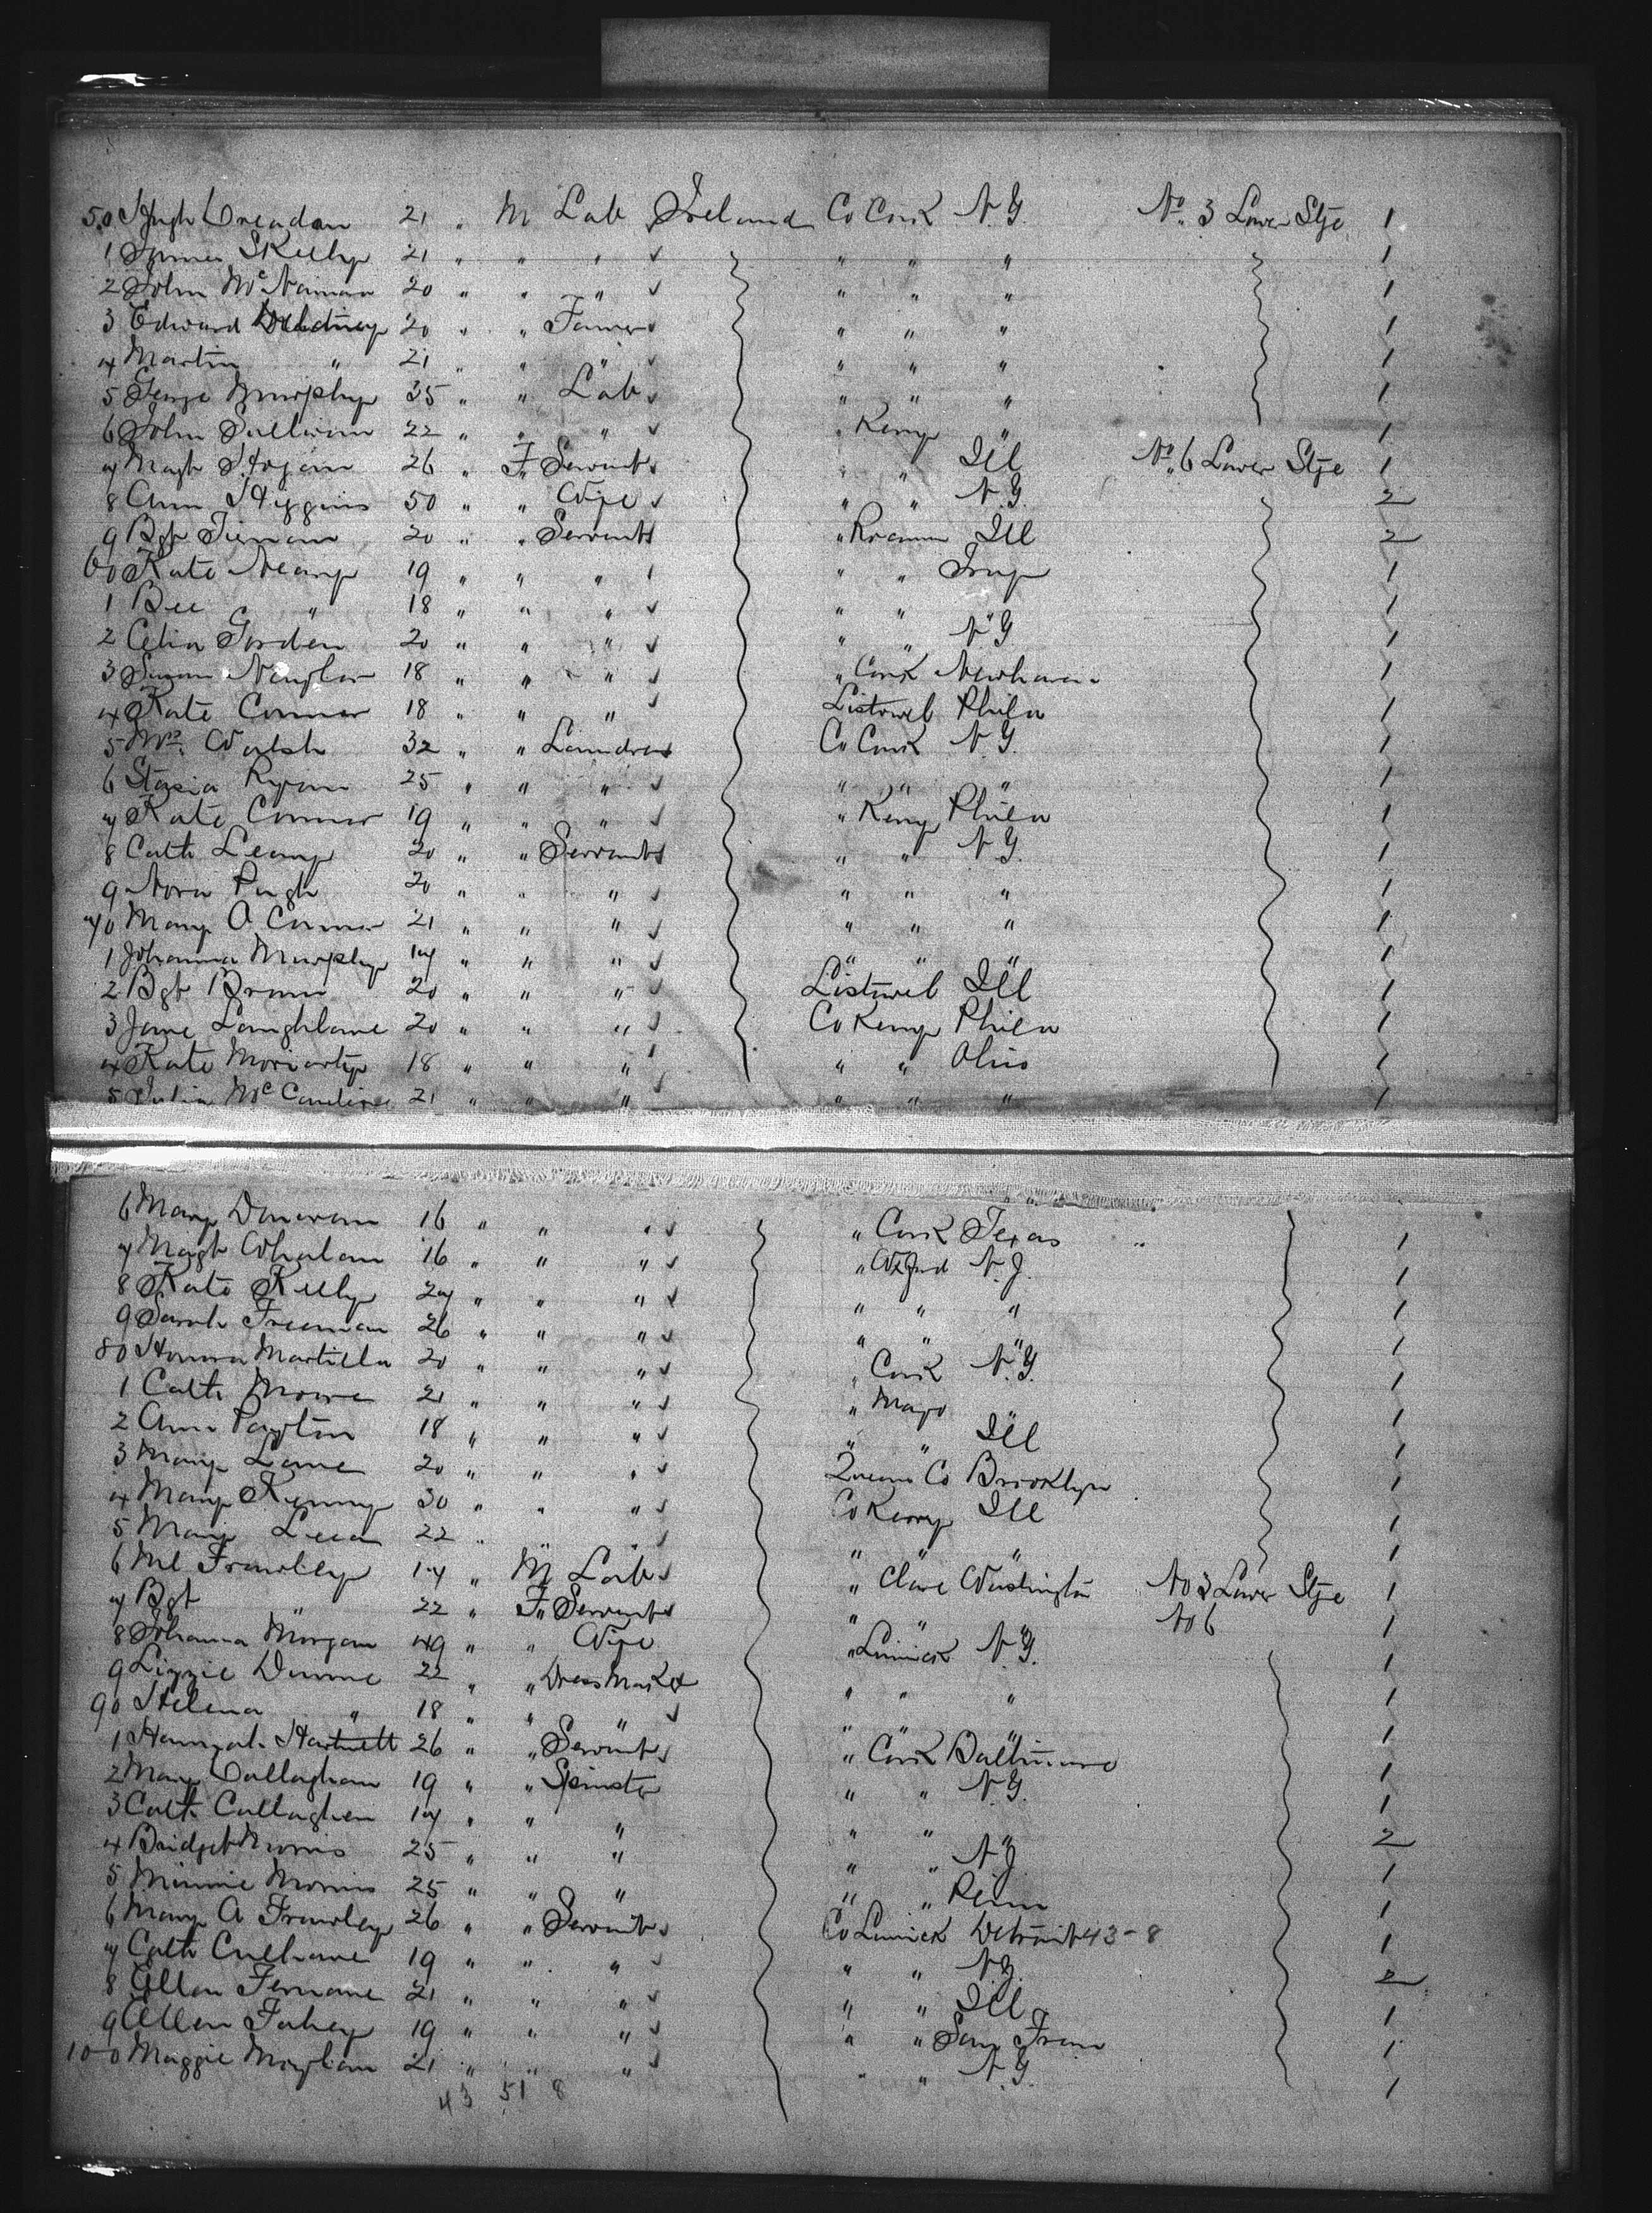 50 Hugh Creadan 21 " M Lab Ireland Co Cork N.Y. No. 3 Lower Stge 1
1 James Skelly 21 " " " " " " 1
2 John McNamara 20 " " " " " " 1
3 Edward 20 " " Farmer " " " 1
4 Martin " 21 " " " " " " 1
5 George Murphy 35 " " Lab " " " 1
6 John Sullivan 22 " " " " Kerry " 1
7 Magt Hogan 26 " F Servant " " Ill No. 6 Lower Stge 1
8 Ann Higgins 50 " " Wife " " N.Y. 2
9 Bgt Tiernan 20 " " Servant " Roscom Ill 2
60 Kate Neary 19 " " " " " Troy 1
1 Bee " 18 " " " " " " 1
2 Celia Gorden 20 " " " " " N.Y. 1
3 Susan Naughton 18 " " " " Cork Newhaven 1
4 Kate Connor 18 " " " Listowel Phila 1
5 Mrs. Walsh 32 " " Laundress Co Cork N.Y. 1
6 Stasia Ryan 25 " " " " " " 1
7 Kate Connor 19 " " " " Kerry Phila 1
8 Cath Leamy 20 " " Servant " " N.Y. 1
9 Nora Pugh 20 " " " " " " 1
70 Mary O Connor 21 " " " " " " 1
1 Johanna Murphy 17 " " " " " " 1
2 Bgt Brown 20 " " " Listowel Ill 1
3 Jane Loughlane 20 " " " Co Kerry Phila 1
4 Kate Moriarty 18 " " " " " Ohio 1
5 Julia Mc 21 " " " " " " 1
6 Mary Donovan 16 " " " " Cork Texas 1
7 Magt Whalan 16 " " " " Wxford N.J. 1
8 Kate Kelly 27 " " " " " " 1
9 Sarah Freeman 26 " " " " " " 1
80 Honora Martilla 20 " " " " Cork N.Y. 1
1 Cath Moore 21 " " " " Mayo " 1
2 Ann Payton 18 " " " " " Ill 1
3 Mary Lane 20 " " " Queens Co Brooklyn 1
4 Mary Kenny 30 " " " Co Kerry Ill 1
5 Mary 22 " " " " " " 1
6 Ml Frawley 17 " M Lab " Clare Washington No 3 Lower Stge 1
7 Bgt " 22 " F Servant " " " No 6 1
8 Johanna Morgan 49 " " Wife " Limrick N.Y. 1
9 Lizzie Dunne 22 " " Dress Maker " " " 1
90 Helena " 18 " " " " " " 1
1 Hannah Hartnett 26 " " Servant " Cork Baltimore 1
2 Mary Callaghan 19 " " Spinster " " N.Y. 1
3 Cath Callaghan 17 " " " " " " 2
4 Bridget Morris 25 " " " " " N.J. 1
5 Minnie Morris 25 " " " " " Penn 1
6 Mary A Frawley 26 " " Servant Co Limrick Detroit 43-8 1
7 Cath Culhane 19 " " " " " N.Y. 2
8 Ellen Fernane 21 " " " " " Ill 1
9 Ellen Fahey 19 " " " " " San Fran 1
100 Maggie 21 " " " " " N.Y. 1
43 51 8